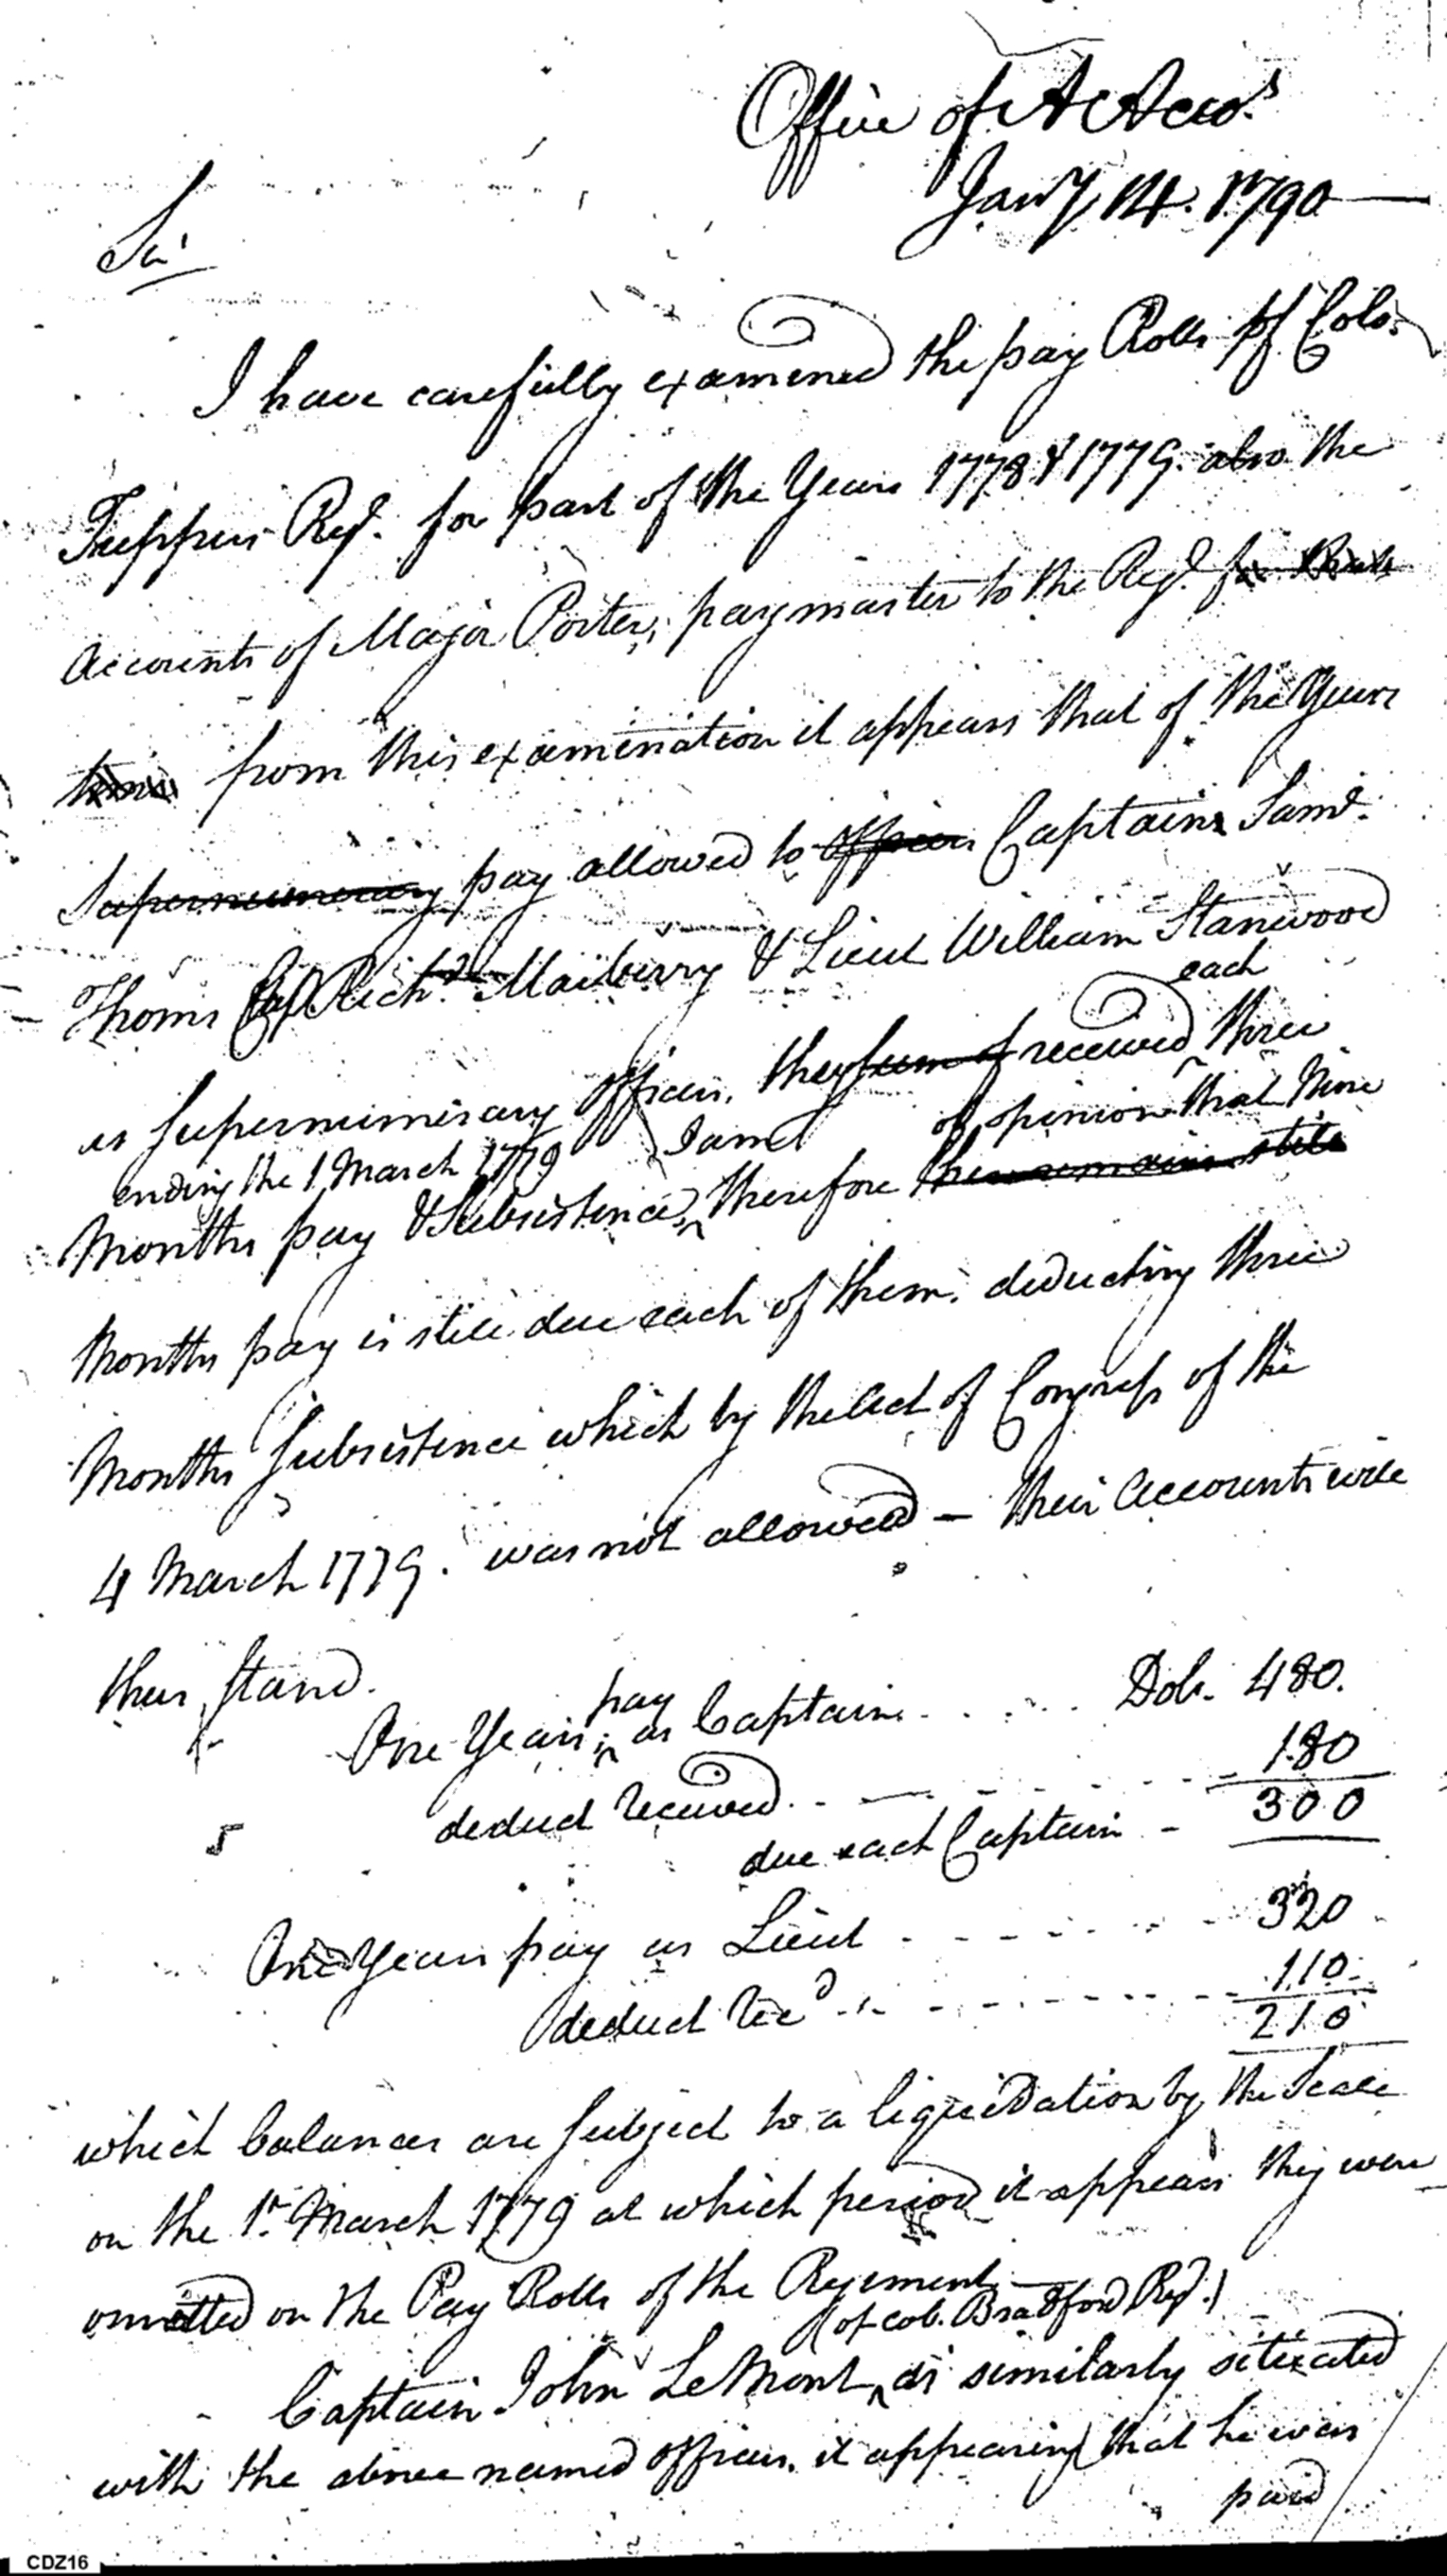 Office of A Acco.ts
Jan'y 14. 1790
Sir
I have carefully examined the pay Rolls of Colo.
Tuppers Reg.t for part of the Years 1778 & 1779. also the
Accounts of Major Porter, paymaster to the Reg.t for
from this examination it appears that of the Years
Supernumerary pay allowed to officers Captains Sam.l
Thoms Cap Rich.d Maiberry & Lieut William Stanwood
each
as Supernumerary officers, they sum of received three
ending the 1 March 1779 I am of opinion that Nine
Months pay & Subsistence, therefore there remains still
Months pay is still due each of them. deducting three
Months Subsistence which by the Act of Congress of the
4 March 1779. was not allowed — their Accounts will
thus stand.
pay
One Years as Captain Dols. 480.
deduct received 180
due each Captain - 300
One Years pay as Lieut 320
deduct Rec.d 110
210
which balances are subject to a liquidation by the Scale
on the 1st March 1779 at which period it appears they were
omitted on the Pay Rolls of the Regiment
(of col. Bradford Reg.t)
Captain John LeMont is similarly situated
with the above named officers. it appearing that he was
paid
CDZ16